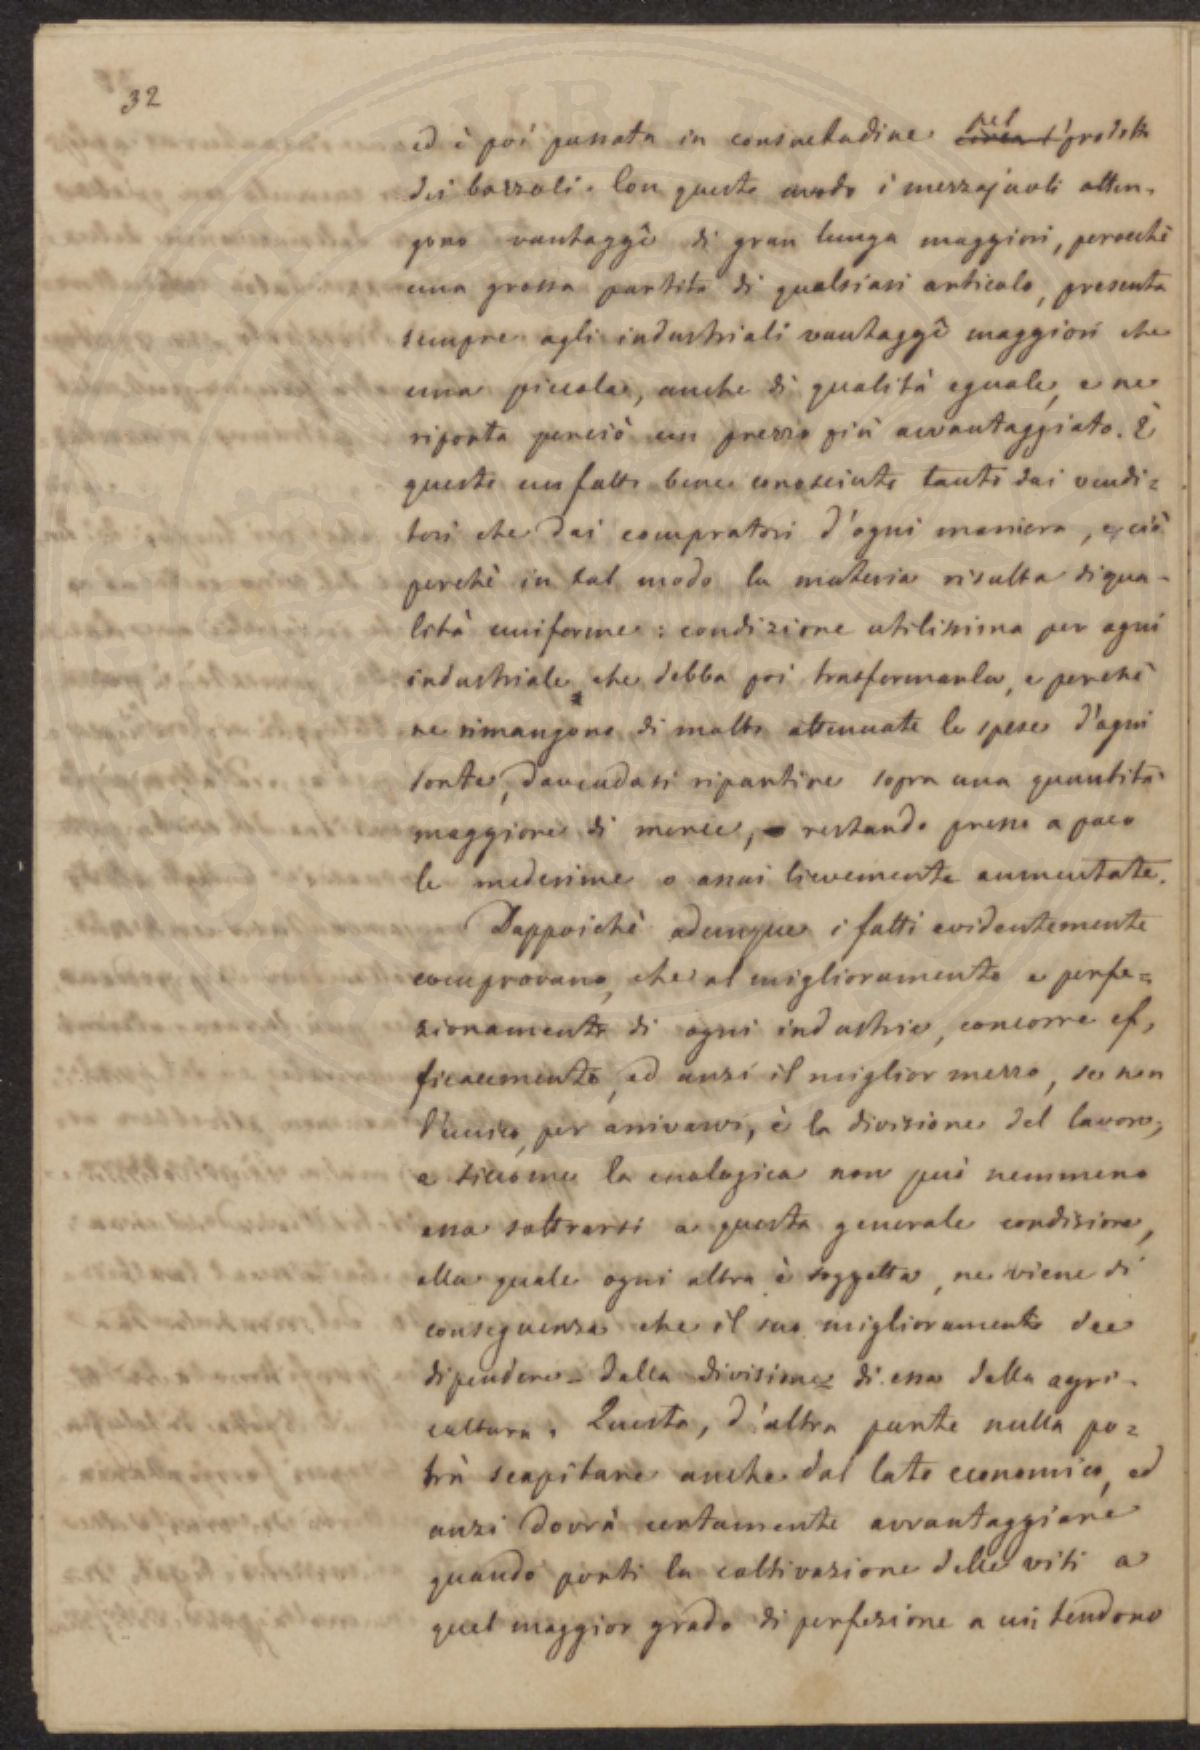 32
ed è poi passata in consuetudine nel prodotto
dei bozzoli. Con questo modo i mezzajuoli otten-
gono vantaggî di gran lunga maggiori, perocchè
una grossa partita di qualsiasi articolo, presenta
sempre agli industriali vantaggî maggiori che
una piccola, anche di qualità eguale, e ne
riporta perciò un prezzo più avvantaggiato. È
questo un fatto bene conosciuto tanto dai vendi=
tori che dai compratori d'ogni maniera, e ciò
perchè in tal modo la materia risulta di qua-
lità uniforme: condizione utilissima per ogni
industriale che debba poi trasformarla, e perchè
ne rimangono di molto attenuate le spese d'ogni
sorta, dovendosi ripartire sopra una quantità
maggiore di merce, restando presso a poco
le medesime o assai lievemente aumentate.
Dappoichè adunque i fatti evidentemente
comprovano, che al miglioramento e perfe=
zionamento di ogni industria, concorre ef,
ficacemente, ed anzi il miglior mezzo, se non
l'unico, per arrivarvi, è la divisione del lavoro,
e siccome la enologica non può nemmeno
essa sottrarsi a questa generale condizione,
alla quale ogni altra è soggetta, ne viene di
conseguenza che il suo miglioramento dee
dipendere dalla divisione di essa dalla agri-
coltura. Questa, d'altra parte nulla po=
trà scapitare anche dal lato economico, ed
anzi dovrà certamente avvantaggiare
quando porti la coltivazione delle viti a
quel maggior grado di perfezione a cui tendono